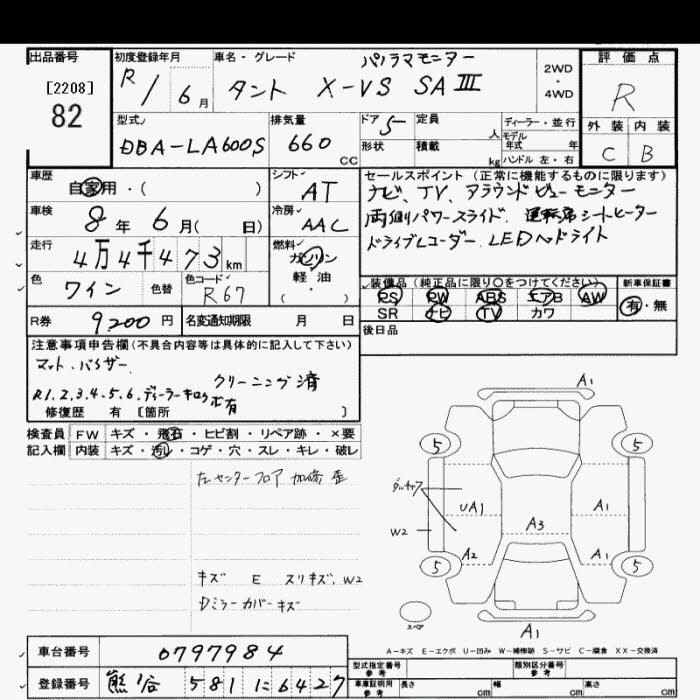 出品番号
[2208]
82
初度登録年月
R/ 6月
車名・グレード
パノラマモニター
タント X-VS SAⅢ
2WD
・
4WD
評価点
R
外装 内装
C B
型式
DBA-LA600S
排気量
660 CC
ドア 5
形状
定員 人
積載 kg
ディーラー・並行
モデル年式 年
ハンドル 左・右
車歴
自家用・( )
シフト
AT
車検
8年 6月( 日)
冷房
AAC
走行
4万4千473km
燃料
ガソリン
軽・油
( ・ )
色
ワイン
色替
色コード
R67
R券 9200円
名変通知期限 月 日
セールスポイント (正常に機能するものに限ります)
ナビ、TV、アラウンドビューモニター
両側パワースライド、運転席シートヒーター
ドライブレコーダー、LEDヘッドライト
装備品(純正品に限り○をつけてください)
PS PW ABS エアB AW
SR ナビ TV カワ
新車保証書
有・無
後日品
注意事項申告欄(不具合内容等は具体的に記入して下さい)
マット、バイザー
クリーニング済
R1.2.3.4.5.6.ディーラーキロク
有
修復歴 有 [箇所 ]
検査員 FW キズ・飛石・ヒビ割・リペア跡・×要
記入欄 内装 キズ・汚レ・コゲ・穴・スレ・キレ・破レ
左センターフロア 加修 歪
キズ E スリキズ、W2
Dミラーカバーキズ
A1
5 5
UA1 A1
W2
A3
A2 A1
5 5
スペア
A1
A-キズ E-エクボ U-凹み W-補修跡 S-サビ C-腐食 XX-交換済
車台番号 0797984
登録番号 熊谷 581 に 6427
型式指定番号
参考
類別区分番号
参考
車庫証明用
参考
長さ cm
幅 cm
高さ cm